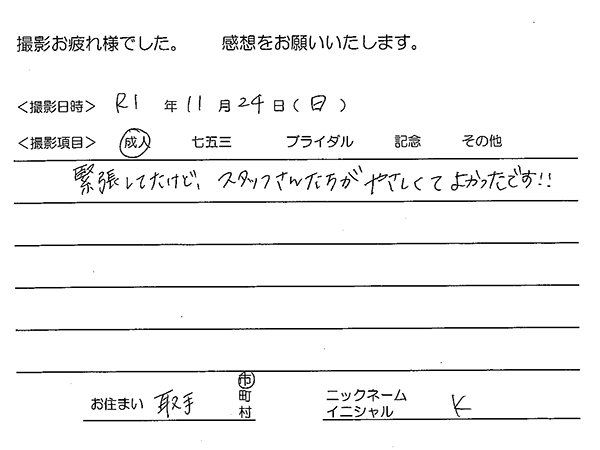 撮影お疲れ様でした。 感想をお願いいたします。
<撮影日時> R1 年 11 月 24 日 ( 日 )
<撮影項目> 成人 七五三 ブライダル 記念 その他
緊張してたけど、スタッフさんたちがやさしくてよかったです!!
お住まい 取手 市 町 村 ニックネーム イニシャル K